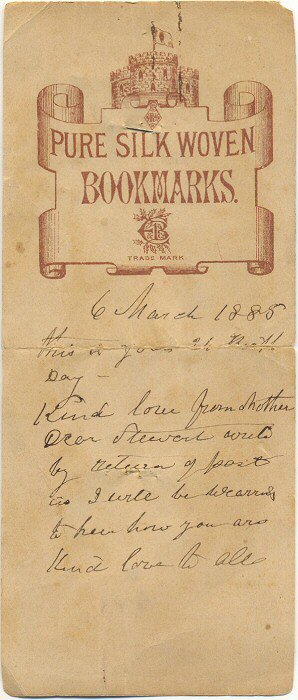 PURE SILK WOVEN
BOOKMARKS.
TRADE MARK
6 March 1885
this is your 21
Day -
Kind love from Mother
Dear Stewart write
by return of post
as I will be
to hear how you are
Kind love to all